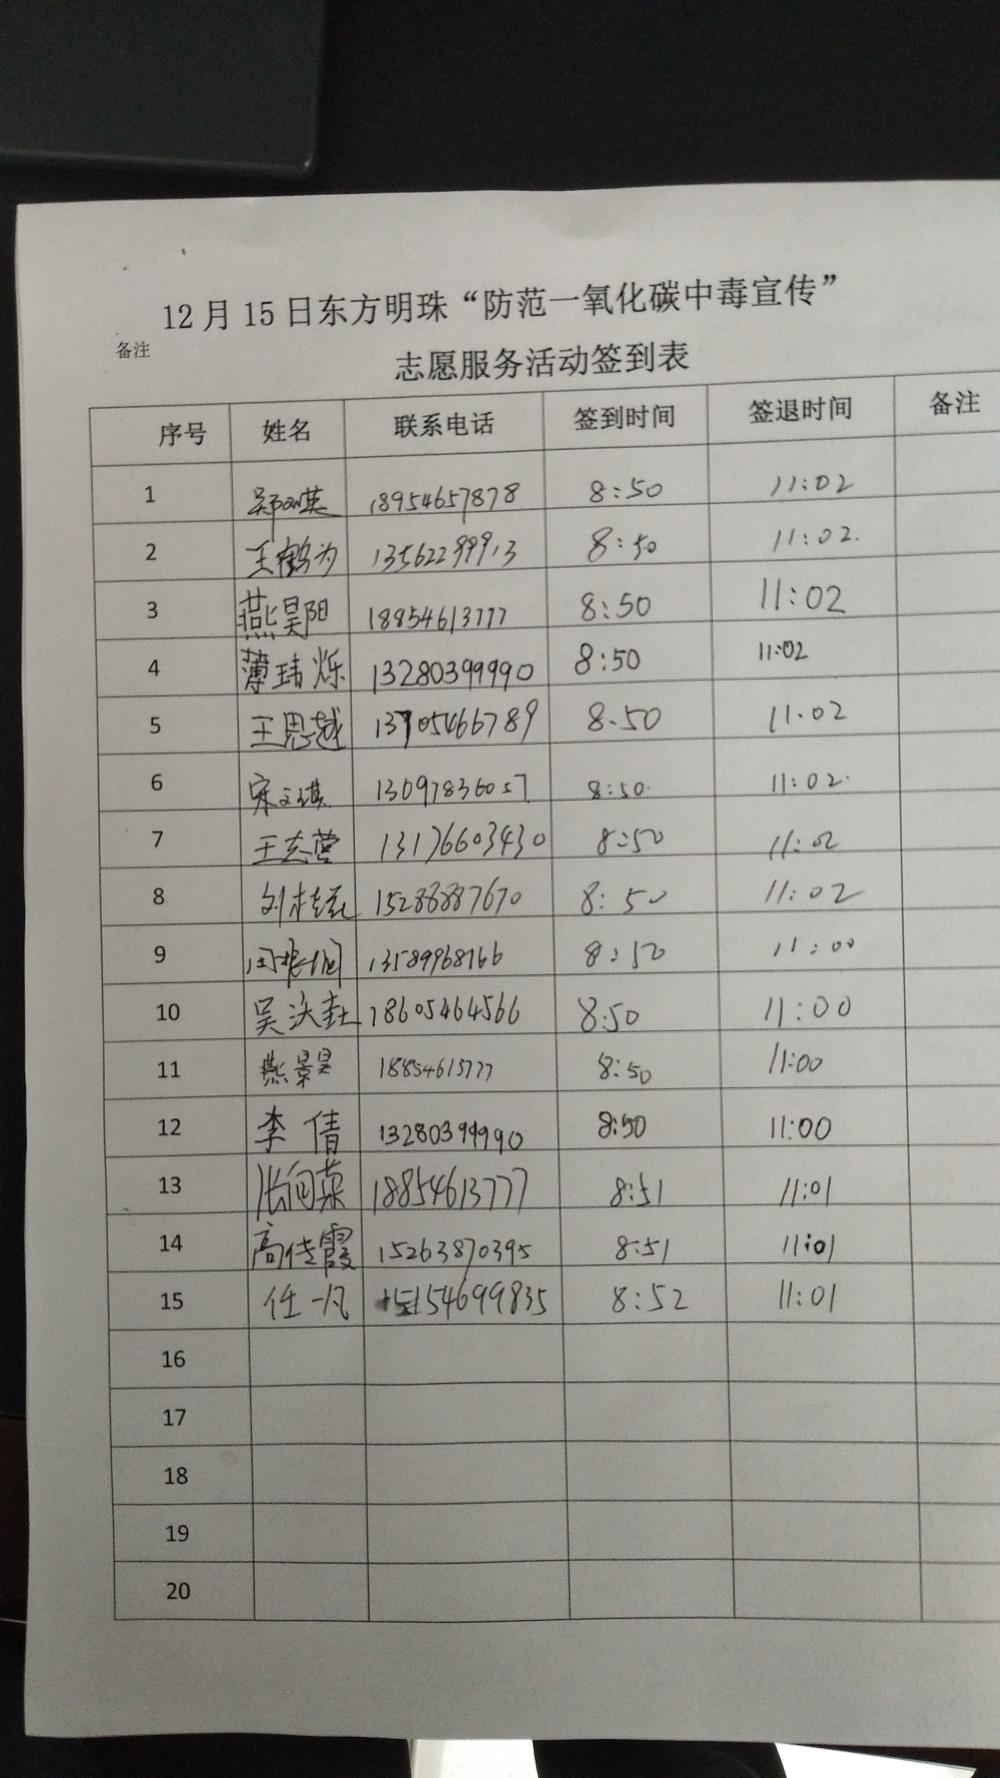 12月15日东方明珠“防范一氧化碳中毒宣传”
备注
志愿服务活动签到表
序号 姓名 联系电话 签到时间 签退时间 备注
1 18954657878 8:50 11:02
2 王鹤为 13562299913 8:50 11:02.
3 燕昊阳 18854613777 8:50 11:02
4 薄玮烁 13280399990 8:50 11:02
5 王思越 13905466789 8.50 11.02
6 宋文琪 13697836057 8:50. 11:02.
7 王志营 13176603430 8:50 11:02
8 15288887670 8:50 11:02
9 13589968766 8:50 11:00
10 18605464566 8:50 11:00
11 燕景昊 18854613777 8:50 11:00
12 李倩 13280399990 8:50 11:00
13 张向荣 18854613777 8:51 11:01
14 高佳霞 15263870395 8:51 11:01
15 任一凡 15154699835 8:52 11:01
16
17
18
19
20